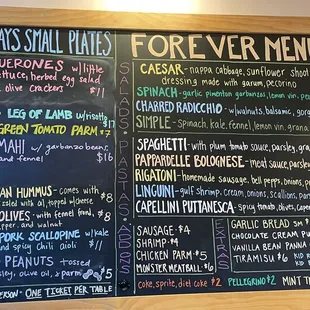 AYS SMALL PLATES
UERONES w/ little
ettuce, herbed egg salad
olive crackers $11
LEG OF LAMB w/ risotto
GREEN TOMATO PARM $7
MAHI w/ garbanzo beans
and fennel $16
AN HUMMUS - comes with
$8
OLIVES - with fennel fond, $8
pepper, and walnut
PORK SCALLOPINE w/ kale
and spicy chili aioli $11
PEANUTS tossed
sley, olive oil, and parm $5
PERSON - ONE TICKET PER TABLE
FOREVER MENU
SALADS
CAESAR - nappa cabbage, sunflower shoot
dressing made with garum, pecorino
SPINACH - garlic pimenton garbanzos, lemon vin, pe
CHARRED RADICCHIO - w/ walnuts, balsamic, gor
SIMPLE - spinach, kale, fennel, lemon vin, grana
PASTAS
SPAGHETTI - with plum tomato sauce, parsley, gra
PAPPARDELLE BOLOGNESE - meat sauce, parsle
RIGATONI - homemade sausage, bell pepps, onions, p
LINGUINI - gulf shrimp, cream, onions, scallions, par
CAPELLINI PUTTANESCA - spicy tomato, olives, caper
ADDONS
SAUSAGE $4
SHRIMP $4
CHICKEN PARM $5
MONSTER MEATBALL $6
EXTRAS
GARLIC BREAD $
CHOCOLATE CREAM PU
VANILLA BEAN PANNA
TIRAMISU $6
KID
KID
coke, sprite, diet coke $2
PELLEGRINO $2
MINT T